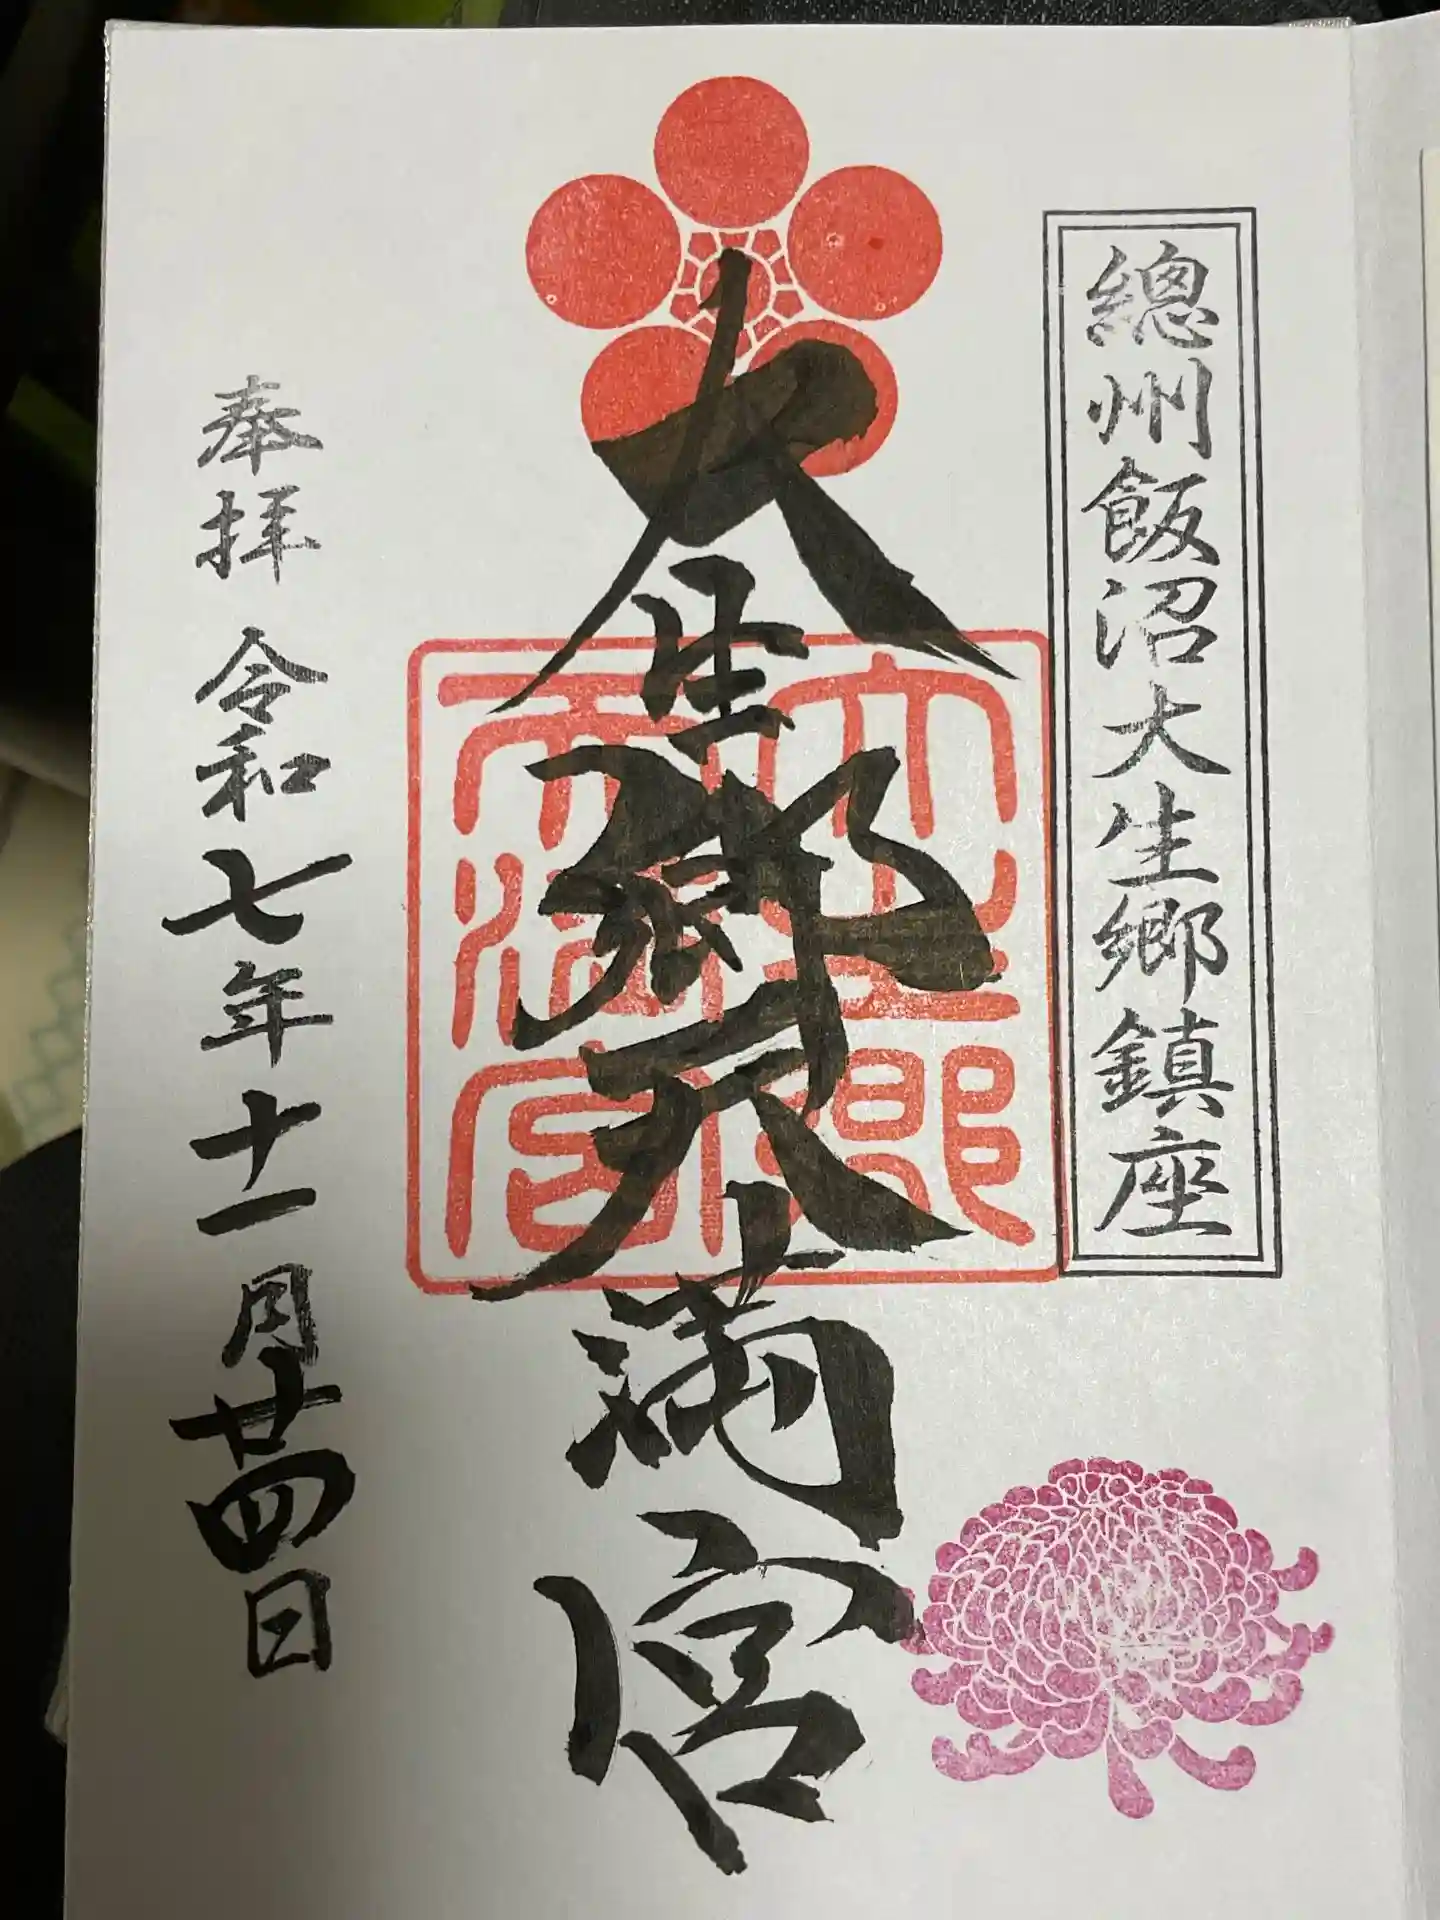 總州飯沼大生郷鎮座
大生郷天満宮
大生郷
天満宮
奉拝 令和七年十一月廿四日